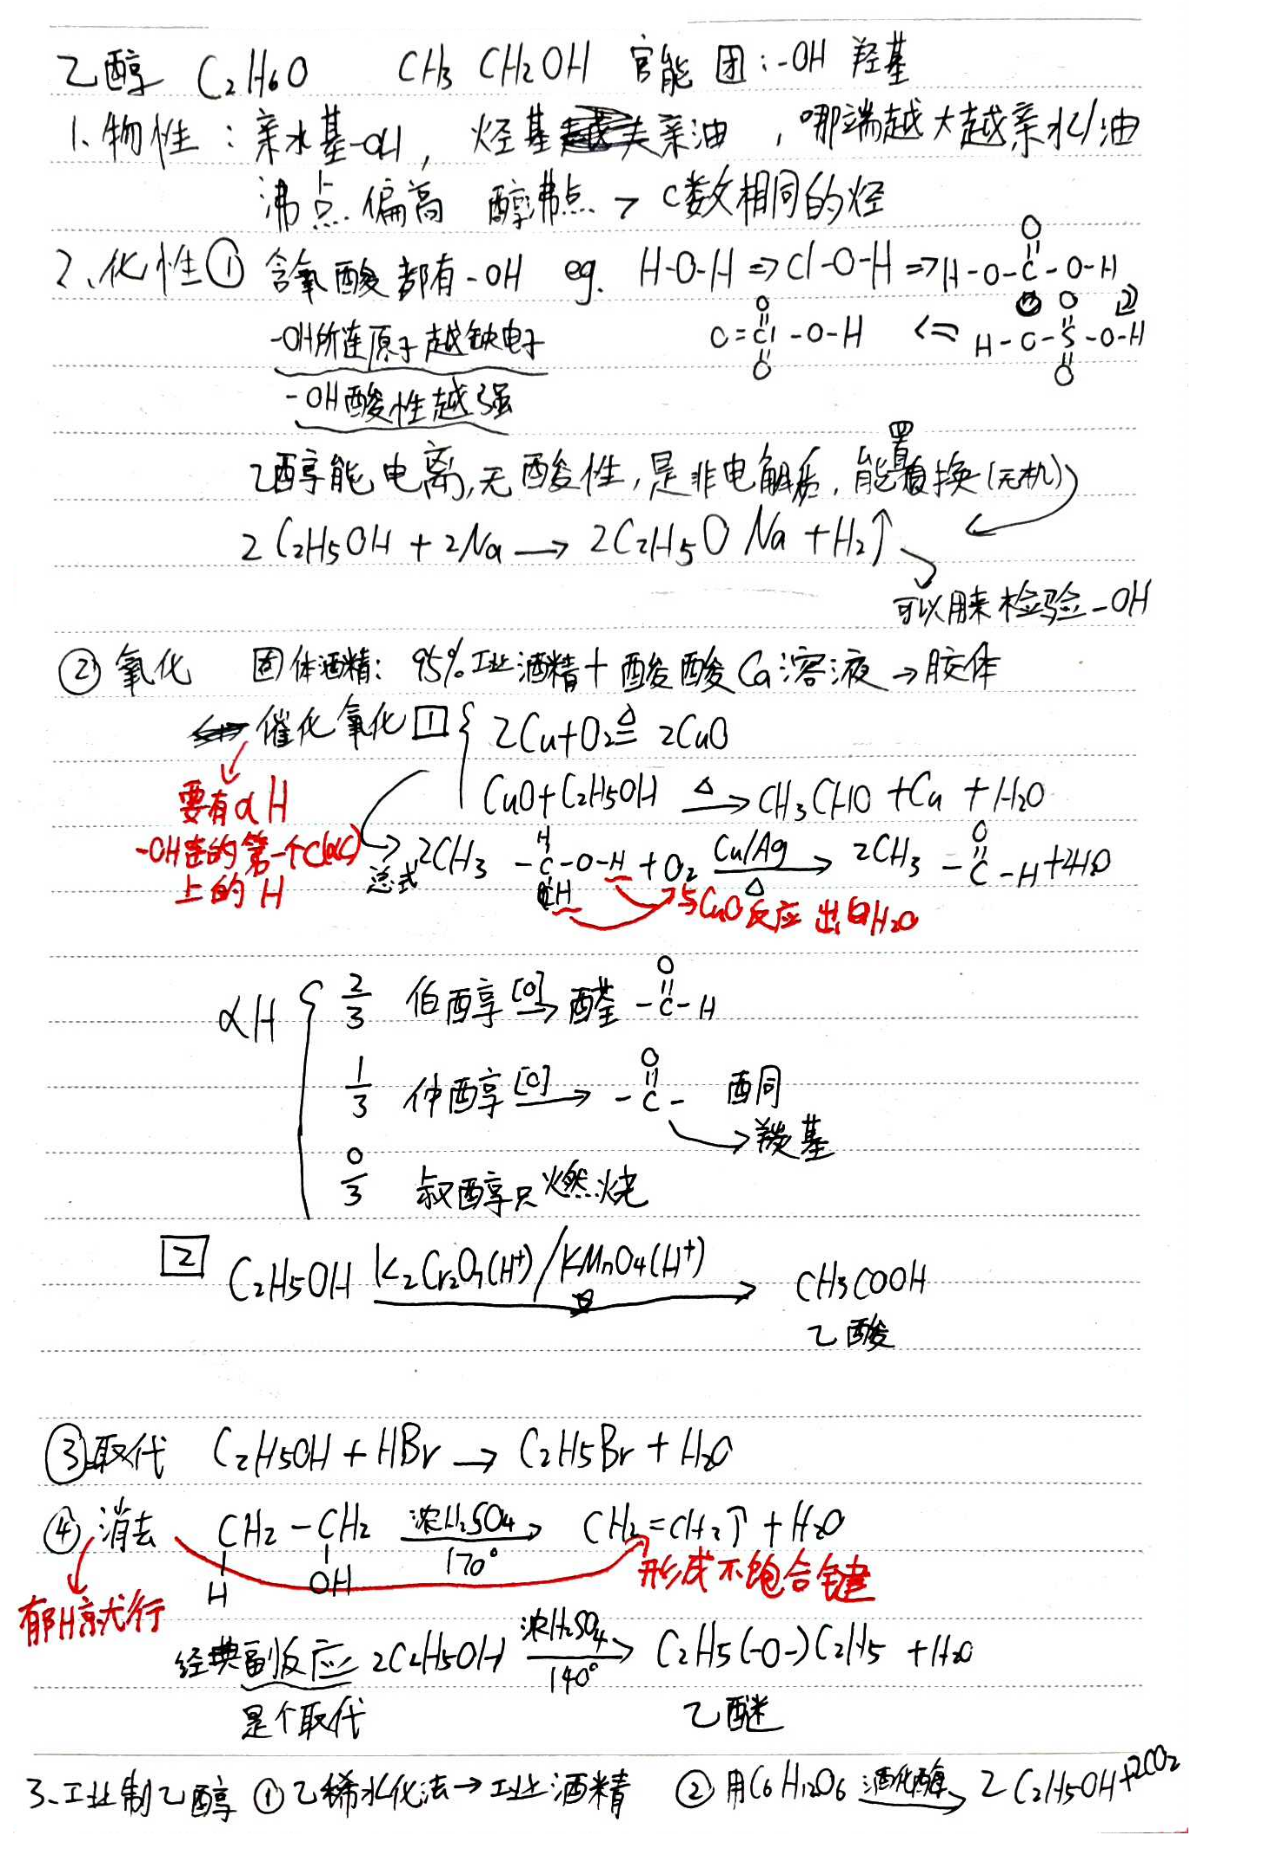 乙醇 C₂H₆O CH₃CH₂OH 官能团:-OH 羟基
1.物性:亲水基-OH, 烃基亲油,哪端越大越亲水/油
沸点偏高 醇沸点 > C数相同的烃
2.化性① 含氧酸都有-OH eg. H-O-H ⇒ Cl-O-H ⇒ H-O-C(=O)-O-H
-OH所连原子越缺电子 O=Cl(=O)(=O)-O-H ⇐ H-O-S(=O)(=O)-O-H
-OH酸性越强
乙醇能电离,无酸性,是非电解质,能置换(无机)
2C₂H₅OH + 2Na → 2C₂H₅ONa + H₂↑
可以用来检验-OH
②氧化 固体酒精: 95%工业酒精+酸酸Ca溶液→胶体
催化氧化 1 { 2Cu+O₂ ≜ 2CuO
要有αH CuO+C₂H₅OH △→ CH₃CHO+Cu+H₂O
-OH连的第一个C(αC)上的H
总式 2CH₃-CH(H)-O-H + O₂ Cu/Ag △→ 2CH₃-C(=O)-H+2H₂O
与CuO反应出H₂O
αH { 2/3 伯醇 [O]→ 醛 -C(=O)-H
1/3 仲醇 [O]→ -C(=O)- 酮
→羰基
0/3 叔醇只燃烧
2 C₂H₅OH K₂Cr₂O₇(H⁺)/KMnO₄(H⁺)→ CH₃COOH
乙酸
③取代 C₂H₅OH + HBr → C₂H₅Br + H₂O
④消去 CH₂(H)-CH₂(OH) 浓H₂SO₄ 170°→ CH₂=CH₂↑ + H₂O
形成不饱合键
有βH就行
经典副反应 2C₂H₅OH 浓H₂SO₄ 140°→ C₂H₅(-O-)C₂H₅ + H₂O
是个取代 乙醚
3.工业制乙醇 ①乙稀水化法→工业酒精 ②用C₆H₁₂O₆ 酒化酶→ 2C₂H₅OH+2CO₂